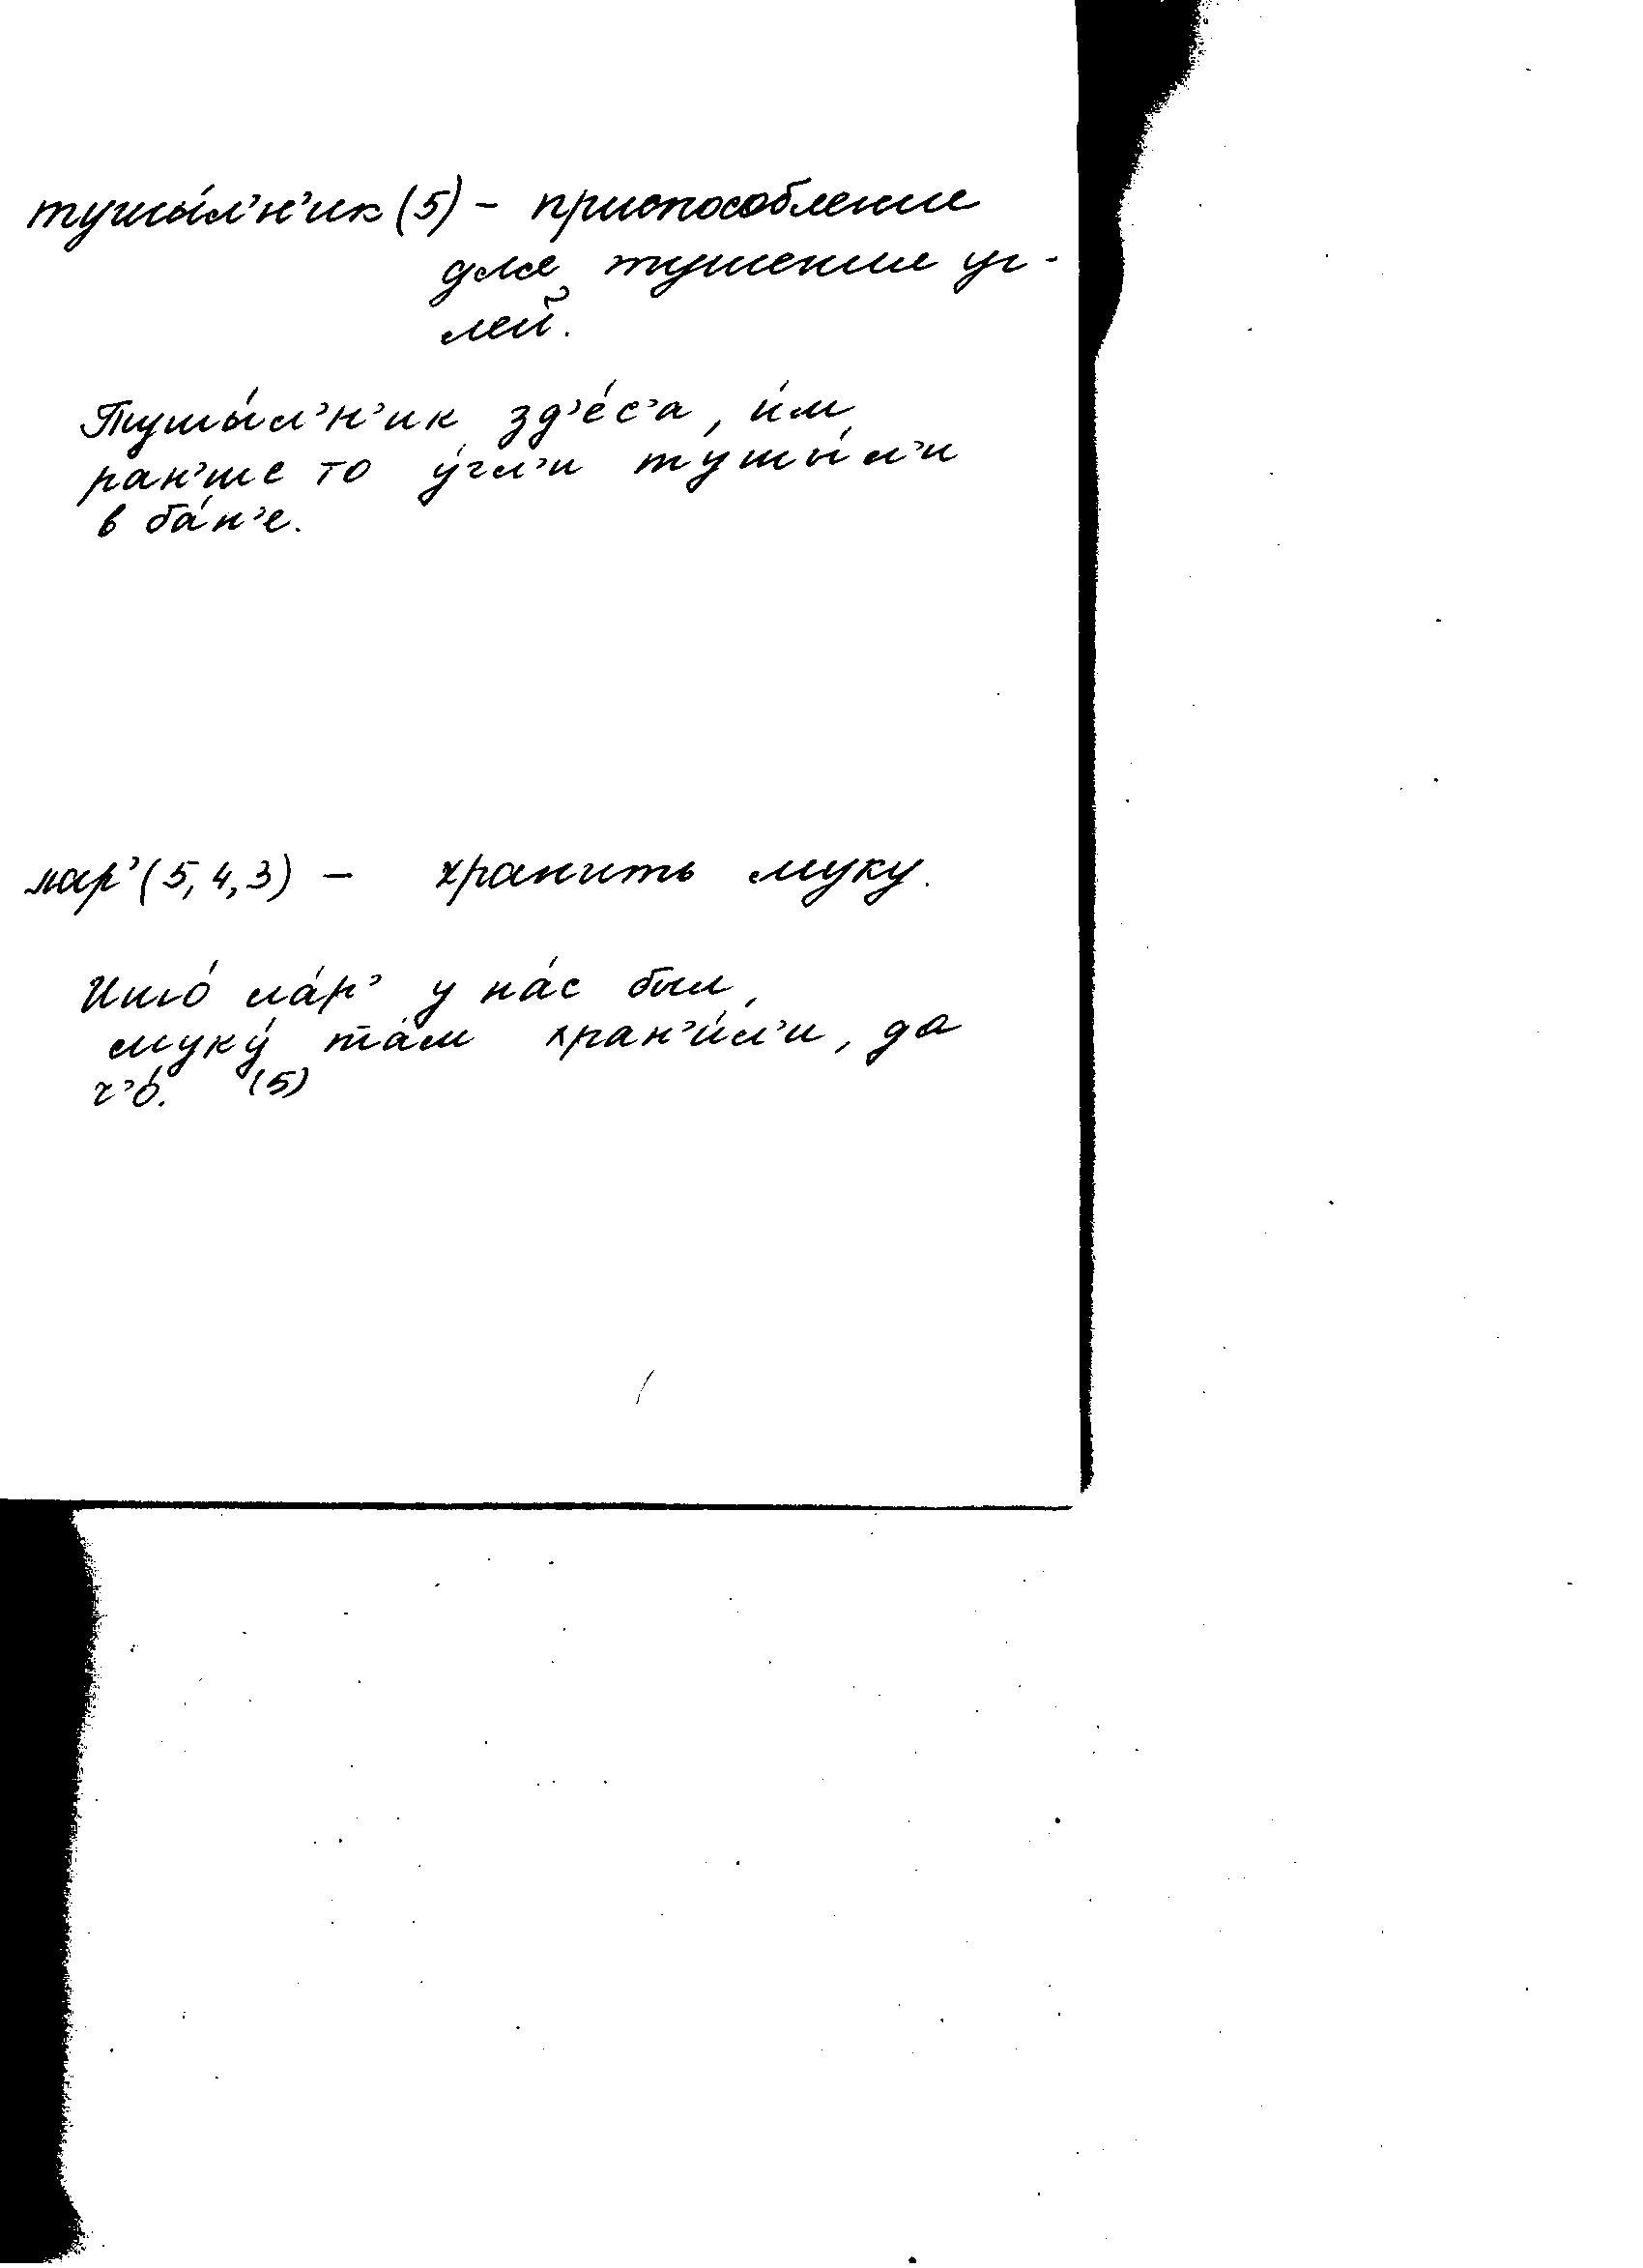 тушы́л'н'ик (5) – приспособление
для тушения уг-
лей.
Тушы́л'н'ик зд'е́с'а, и́м
ран'ше то у́гл'и тушы́л'и
в ба́н'е.
лар' (5, 4, 3) – хранить муку.
Ишо́ ла́р' у на́с был,
муку́ та́м хран'и́л'и, да
ч'о́. (5)